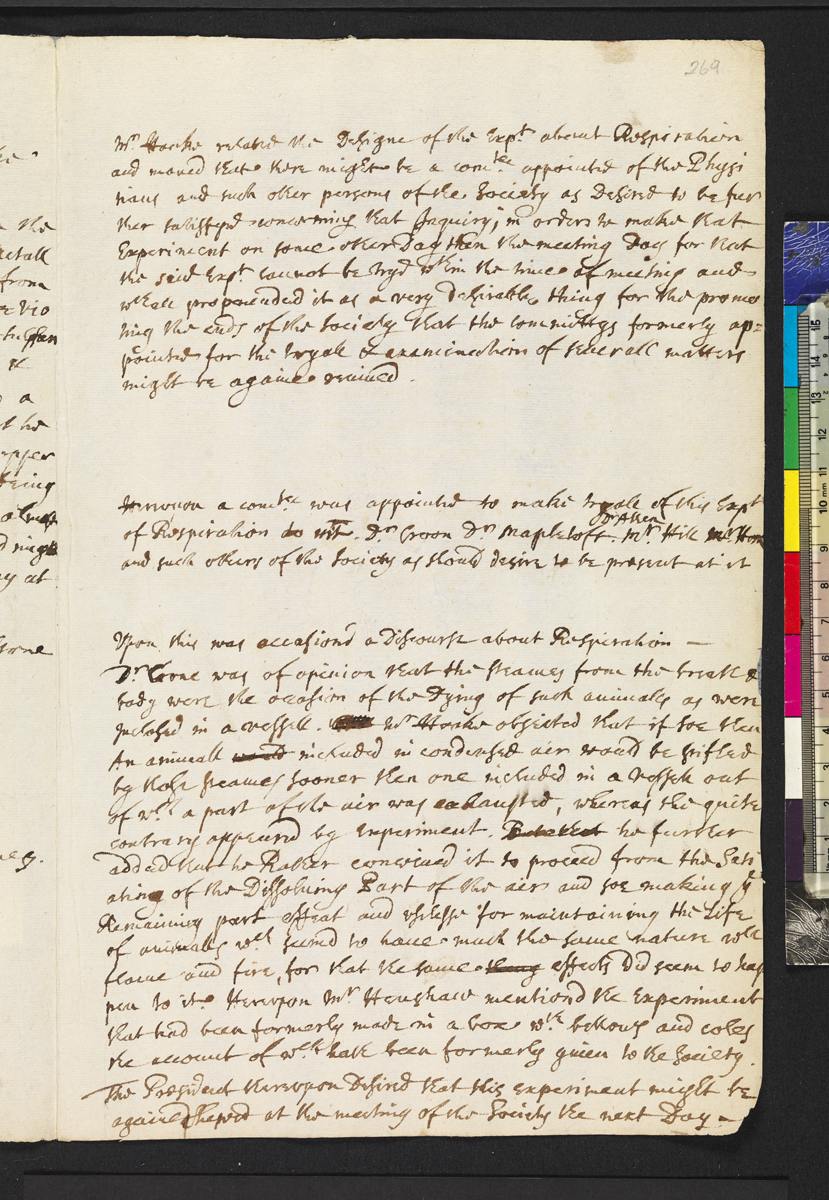 269
Mr Hooke related the Designe of the Expt about Respiration
and moved that there might be a comtee appointed of the Physi
tians and such other persons of the Society as Desired to be fur
ther satisfyd concerning that Inquiry; in order to make that
Experiment on some other Day then the meeting Day for that
the said Expt cannot be tryd wthin the time of meeting and
wthall propounded it as a very Desirable thing for the promo
ting the ends of the Society that the committys formerly ap=
pointed for the tryall & examination of severall matters
might be againe revived.
Hereupon a comtee was appointed to make tryall of this Expt
Dr Allen
of Respiration to wit. Dr Croon Dr Mapletoft. Mr Hill Mr Hook
and such others of the Society as should desire to be present at it
Upon this was occasiond a Discourse about Respiration —
Dr Crone was of opinion that the steames from the breath &
body were the occasion of the Dying of such animalls as were
Inclosed in a vessell. Mr Hooke objected that if soe then
An animall would included in condensed air would be stifled
by those steames sooner then one included in a vessell out
of wch a part of the air was exhausted, whereas the quite
contrary appeared by experiment. he further
added that he Rather conceived it to proceed from the Sati
ating of the Dissolving Part of the air and soe making ye
Remaining part effeat and uselesse for maintaining the Life
of animalls wch seemd to have much the same nature wth
flame and fire, for that the same thing effects Did seem to hap
pen to it. Hereupon Mr Henshaw mentiond the Experiment
that had been formerly made in a box wth bellows and coles
the account of wch hath been formerly given to the Society.
The President thereupon Desired that this experiment might be
againe shewd at the meeting of the Society the next Day —